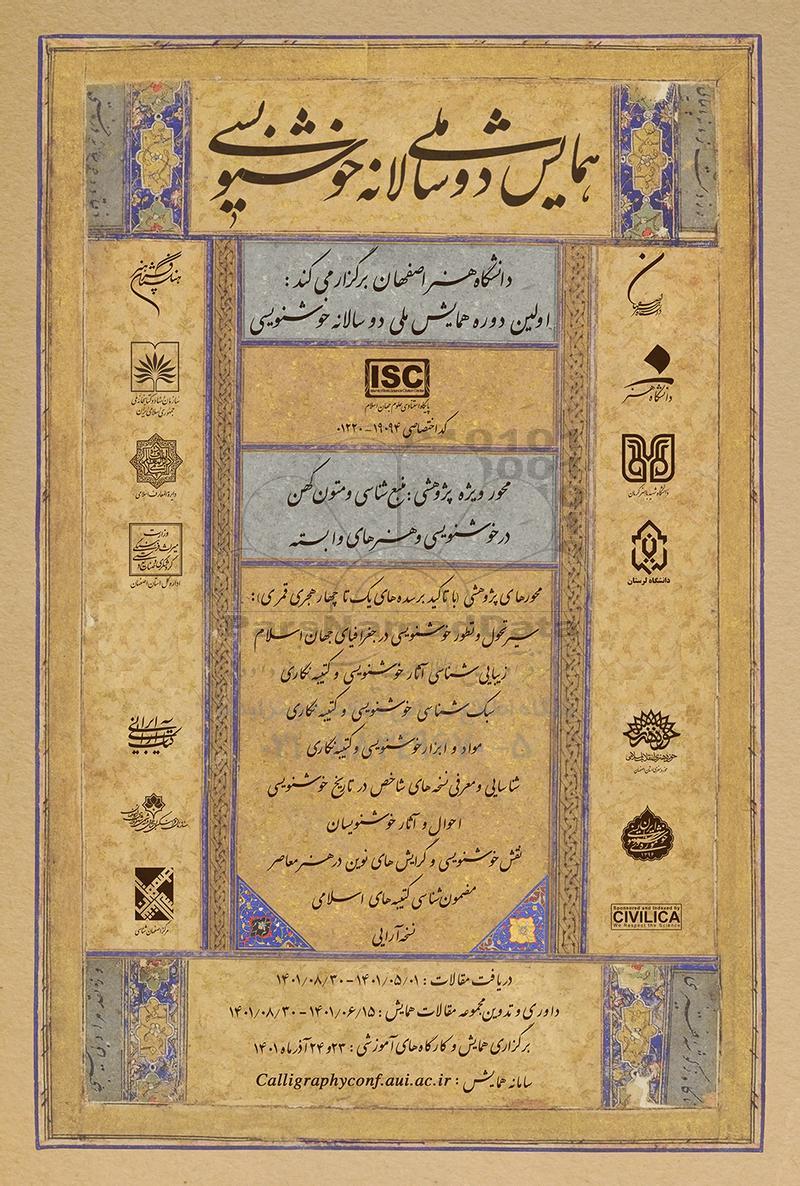 همایش دوسالانه ملی خوشنویسی
دانشگاه هنر اصفهان برگزار می کند :
اولین دوره همایش ملی دو سالانه خوشنویسی
ISC
پایگاه استنادی علوم جهان اسلام
کد اختصاصی ۱۹۰۹۴ - ۰۱۲۲۰
محور ویژه پژوهشی : منبع شناسی و متون کهن
در خوشنویسی و هنرهای وابسته
محورهای پژوهشی (با تاکید بر سده های یک تا چهار هجری قمری):
سیر تحول و تطور خوشنویسی در جغرافیای جهان اسلام
زیبایی شناسی آثار خوشنویسی و کتیبه نگاری
سبک شناسی خوشنویسی و کتیبه نگاری
مواد و ابزار خوشنویسی و کتیبه نگاری
شناسایی و معرفی نسخه های شاخص در تاریخ خوشنویسی
احوال و آثار خوشنویسان
نقش خوشنویسی و گرایش های نوین در هنر معاصر
مضمون شناسی کتیبه های اسلامی
نسخه آرایی
دریافت مقالات : ۱۴۰۱/۰۵/۰۱ - ۱۴۰۱/۰۸/۳۰
داوری و تدوین مجموعه مقالات همایش : ۱۴۰۱/۰۶/۱۵ - ۱۴۰۱/۰۸/۳۰
برگزاری همایش و کارگاه های آموزشی : ۲۳ و ۲۴ آذر ماه ۱۴۰۱
سامانه همایش : Calligraphyconf.aui.ac.ir
دانشگاه هنر
دانشگاه شهید باهنر کرمان
دانشگاه لرستان
حوزه هنری انقلاب اسلامی
حوزه هنری استان اصفهان
Sponsored and Indexed by
CIVILICA
We Respect the Science
سازمان اسناد و کتابخانه ملی
جمهوری اسلامی ایران
دایرة المعارف اسلامی
وزارت
میراث فرهنگی
گردشگری و صنایع دستی
اداره کل استان اصفهان
کتاب آرایی ایرانی
مرکز اصفهان شناسی
ParsNamadData